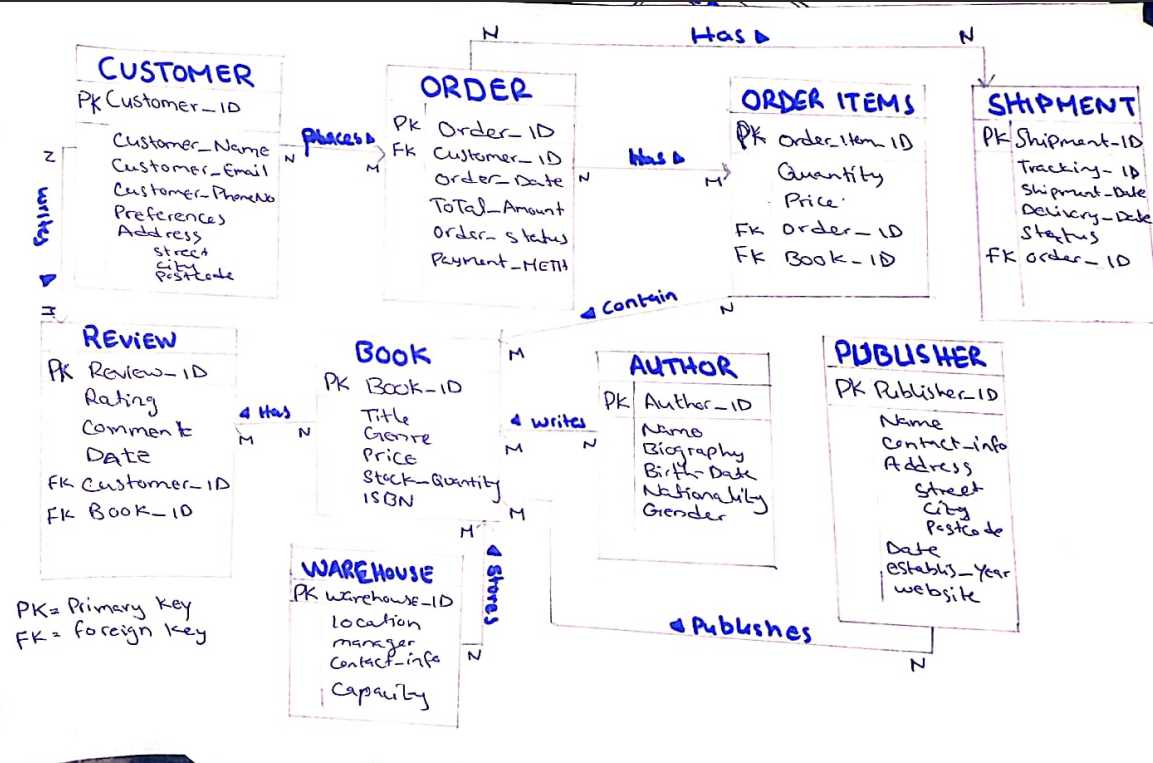 Has ▶
N
N
CUSTOMER
PK Customer_ID
Customer_Name
Customer_Email
Customer_PhoneNo
Preferences
Address
Street
City
Postcode
N
Places ▶
M
ORDER
PK Order_ID
FK Customer_ID
Order_Date
ToTal_Amount
Order_Status
Payment_METH
N
Has ▶
M
ORDER ITEMS
PK Order_Item_ID
Quantity
Price
FK Order_ID
FK Book_ID
SHIPMENT
PK Shipment-ID
Tracking-ID
Shipment-Date
Delivery-Date
Status
FK order_ID
N
writes ▶
M
◀ Contain
N
M
REVIEW
PK Review_ID
Rating
Comment
DATE
FK Customer_ID
FK Book_ID
◀ Has
M
N
BOOK
PK Book_ID
Title
Genre
Price
Stock_Quantity
ISBN
◀ writes
M
N
AUTHOR
PK Author_ID
Name
Biography
Birth-Date
Nationality
Gender
PUBLISHER
PK Publisher_ID
Name
Contact_info
Address
Street
City
Postcode
Date
establis_Year
website
M
◀ Publishes
N
M
◀ Stores
N
WAREHOUSE
PK Warehouse_ID
Location
manager
Contact_info
Capacity
PK = Primary Key
FK = foreign key